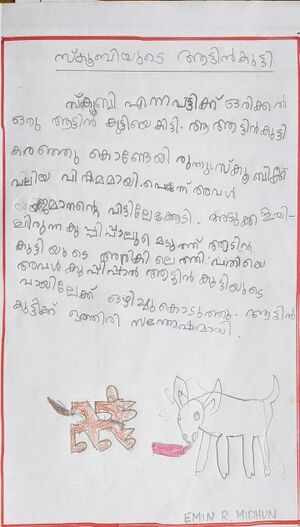 സ്കൂബിയുടെ ആട്ടിൻകുട്ടി
സ്ക്കൂബി എന്ന പട്ടിക്ക് ഒരിക്കൽ
ഒരു ആട്ടിൻ കുട്ടിയെ കിട്ടി. ആ ആട്ടിൻകുട്ടി
കരഞ്ഞു കൊണ്ടേയി രുന്നു. സ്കൂബിക്ക്
വലിയ വിഷമമായി. പെട്ടന്ന് അവൾ
യജമാനന്റെ വീട്ടിലേക്കോടി. അടുക്കളയി-
ലിരുന്ന കുപ്പിപ്പാലുമെടുത്ത് ആട്ടിൻ
കുട്ടി യുടെ അരികിലെത്തി. പതിയെ
അവൾ കുപ്പിപ്പാൽ ആട്ടിൻ കുട്ടിയുടെ
വായിലേക്ക് ഒഴിച്ചുകൊടുത്തു. ആട്ടിൻ
കുട്ടിക്ക് ഒത്തിരി സന്തോഷമായി.
EMIN R. MIDHUN